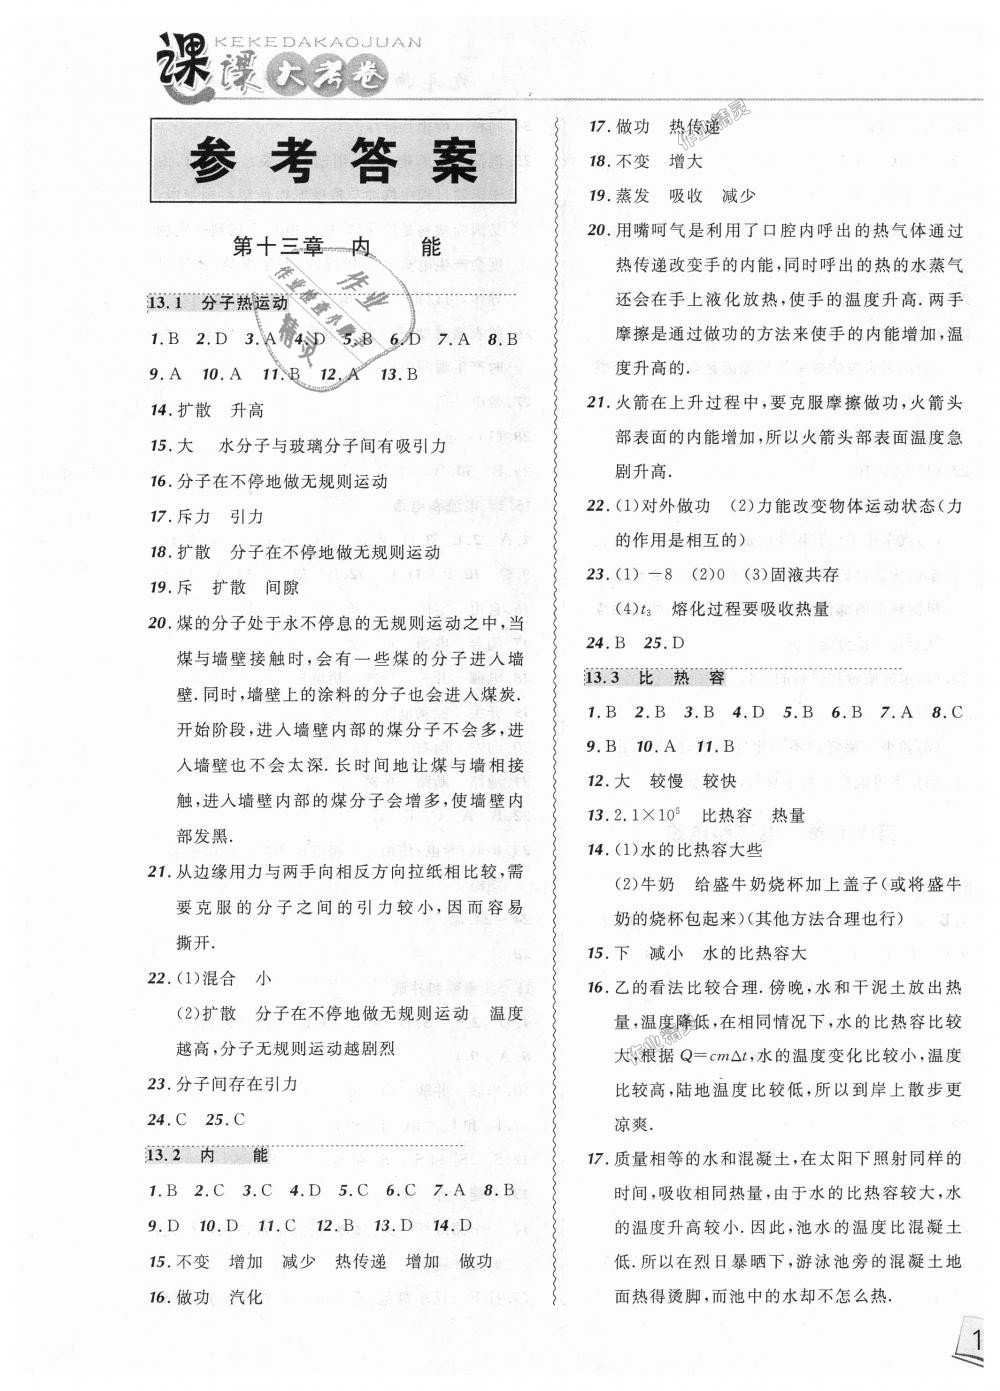 KEKEDAKAOJUAN
课课大考卷
参考答案
第十三章 内 能
13.1 分子热运动
1.B 2.D 3.A 4.D 5.B 6.D 7.A 8.B
9.A 10.A 11.B 12.A 13.B
14.扩散 升高
15.大 水分子与玻璃分子间有吸引力
16.分子在不停地做无规则运动
17.斥力 引力
18.扩散 分子在不停地做无规则运动
19.斥 扩散 间隙
20.煤的分子处于永不停息的无规则运动之中,当
煤与墙壁接触时,会有一些煤的分子进入墙
壁.同时,墙壁上的涂料的分子也会进入煤炭.
开始阶段,进入墙壁内部的煤分子不会多,进
入墙壁也不会太深.长时间地让煤与墙相接
触,进入墙壁内部的煤分子会增多,使墙壁内
部发黑.
21.从边缘用力与两手向相反方向拉纸相比较,需
要克服的分子之间的引力较小,因而容易
撕开.
22.(1)混合 小
(2)扩散 分子在不停地做无规则运动 温度
越高,分子无规则运动越剧烈
23.分子间存在引力
24.C 25.C
13.2 内 能
1.B 2.C 3.C 4.D 5.C 6.C 7.A 8.B
9.D 10.D 11.C 12.B 13.D 14.D
15.不变 增加 减少 热传递 增加 做功
16.做功 汽化
17.做功 热传递
18.不变 增大
19.蒸发 吸收 减少
20.用嘴呵气是利用了口腔内呼出的热气体通过
热传递改变手的内能,同时呼出的热的水蒸气
还会在手上液化放热,使手的温度升高.两手
摩擦是通过做功的方法来使手的内能增加,温
度升高的.
21.火箭在上升过程中,要克服摩擦做功,火箭头
部表面的内能增加,所以火箭头部表面温度急
剧升高.
22.(1)对外做功 (2)力能改变物体运动状态(力
的作用是相互的)
23.(1)-8 (2)0 (3)固液共存
(4)t₃ 熔化过程要吸收热量
24.B 25.D
13.3 比 热 容
1.B 2.B 3.B 4.D 5.B 6.B 7.A 8.C
9.B 10.A 11.B
12.大 较慢 较快
13.2.1×10⁵ 比热容 热量
14.(1)水的比热容大些
(2)牛奶 给盛牛奶烧杯加上盖子(或将盛牛
奶的烧杯包起来)(其他方法合理也行)
15.下 减小 水的比热容大
16.乙的看法比较合理.傍晚,水和干泥土放出热
量,温度降低,在相同情况下,水的比热容比较
大,根据Q=cmΔt,水的温度变化比较小,温度
比较高,陆地温度比较低,所以到岸上散步更
凉爽.
17.质量相等的水和混凝土,在太阳下照射同样的
时间,吸收相同热量,由于水的比热容较大,水
的温度升高较小.因此,池水的温度比混凝土
低.所以在烈日暴晒下,游泳池旁的混凝土地
面热得烫脚,而池中的水却不怎么热.
1
作业
作业检查小助手
精灵
作业精灵
作业精灵